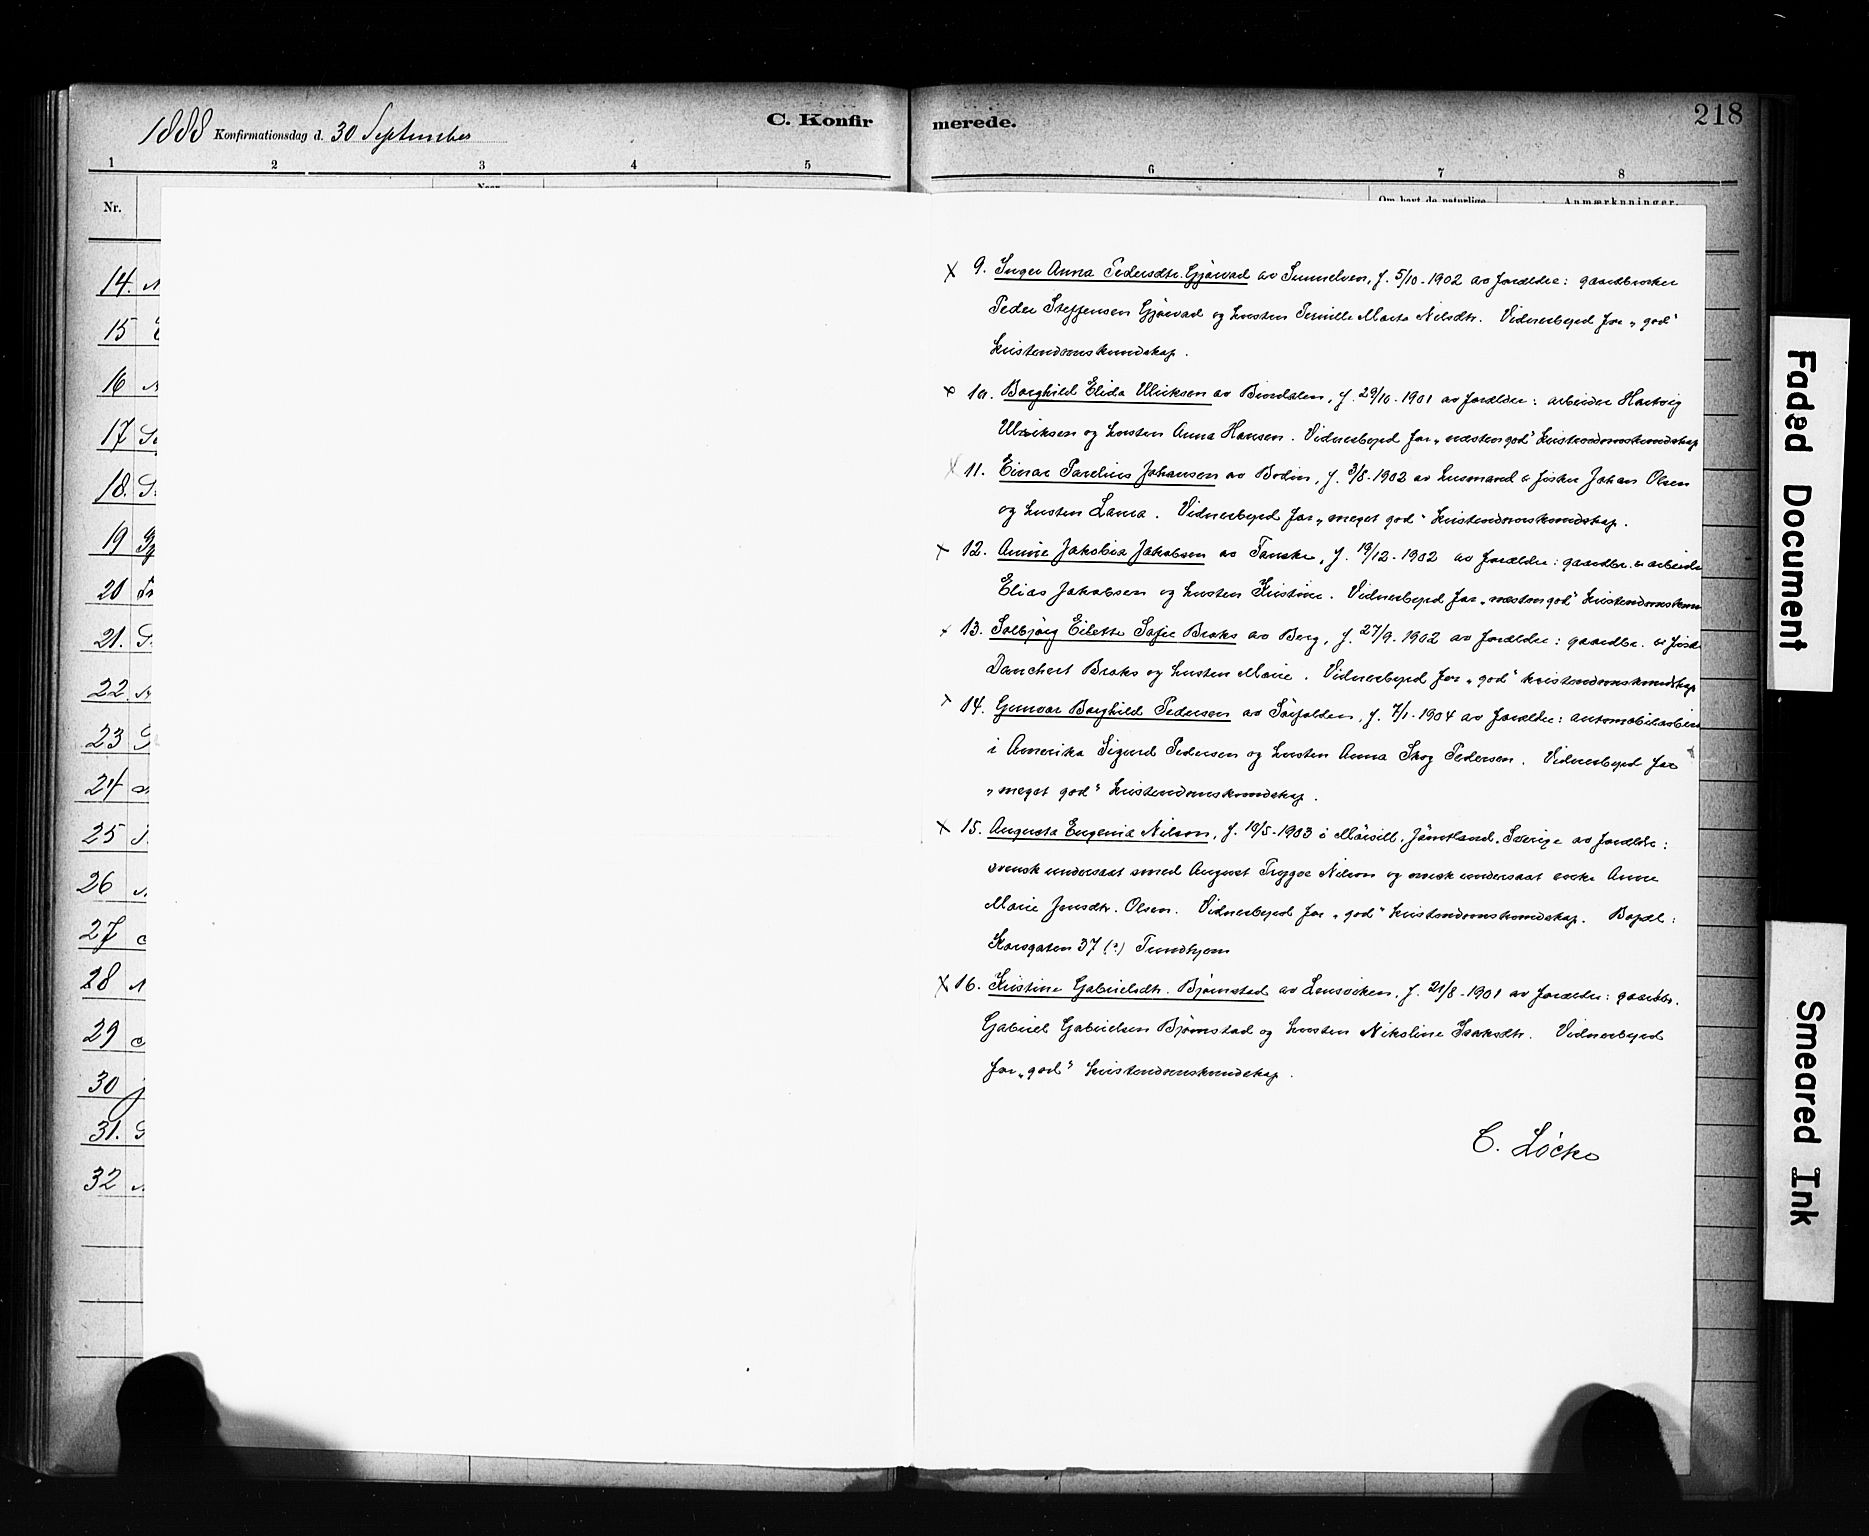 1888 Konfirmationsdag d. 30 September
C. Konfir merede.
218
1 2 3 4 5 6 7 8
Nr.
Om havt de naturlige
Anmærkninger.
14.
15
16
17
18.
19
20
21.
22.
23
24
25
26
27
28
29
30
31.
32
x 9. Inger Anna Pedersdtr. Gjørvad av Sunnelven, f. 5/10-1902 av forældre: gaardbruker
Peder Steffensen Gjørvad og hustru Pernille Marta Nilsdtr. Vidnesbyrd for „god"
kristendomskundskap.
x 10. Borghild Elida Ulriksen av Buvdalen, f. 29/10-1901 av forældre: arbeider Hartvig
Ulriksen og hustru Anna Hansen. Vidnesbyrd for „næsten god" kristendomskundskap
x 11. Einar Parelius Johansen av Bodin, f. 3/8-1902 av husmand & fisker Johan Olsen
og hustru Laura. Vidnesbyrd for „meget god" kristendomskundskap.
x 12. Annie Jakobia Jakobsen av Fauske, f. 19/12-1902 av forældre: gaardbr. & arbeide
Elias Jakobsen og hustru Kristine. Vidnesbyrd for „næsten god" kristendomskun
x 13. Solbjørg Eilette Sofie Braks av Berg, f. 27/9-1902 av forældre: gaardbr. & fisk
Danchert Braks og hustru Marie. Vidnesbyrd for „god" kristendomskundskap
x 14. Gunvor Borghild Pedersen av Sørfolden, f. 7/1-1904 av forældre: automobilarbei
i Amerika Sigurd Pedersen og hustru Anna Skog Pedersen. Vidnesbyrd for
„meget god" kristendomskundskap.
x 15. Augusta Eugenia Nilson, f. 19/5-1903 i Mörsill, Jämtland, Sverige av forældre:
svensk undersaat smed August Trygve Nilson og norsk undersaat Anne
Marie Jensdtr. Olsen. Vidnesbyrd for „god" kristendomskundskap. Bopæl:
Korsgaten 37 (?) Trondhjem
x 16. Kristine Gabrielsdtr. Bjørnstad av Lensviken, f. 21/8-1901 av forældre: gaardbr.
Gabriel Gabrielsen Bjørnstad og hustru Nikoline Isaksdtr. Vidnesbyrd
for „god" kristendomskundskap.
C. Løcke
Faded Document
Smeared Ink